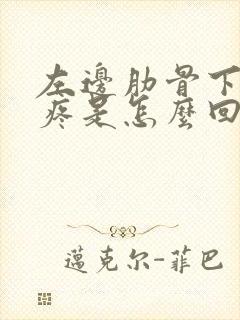 左邊肋骨下
疼是怎麼回
邁克尔-菲巴